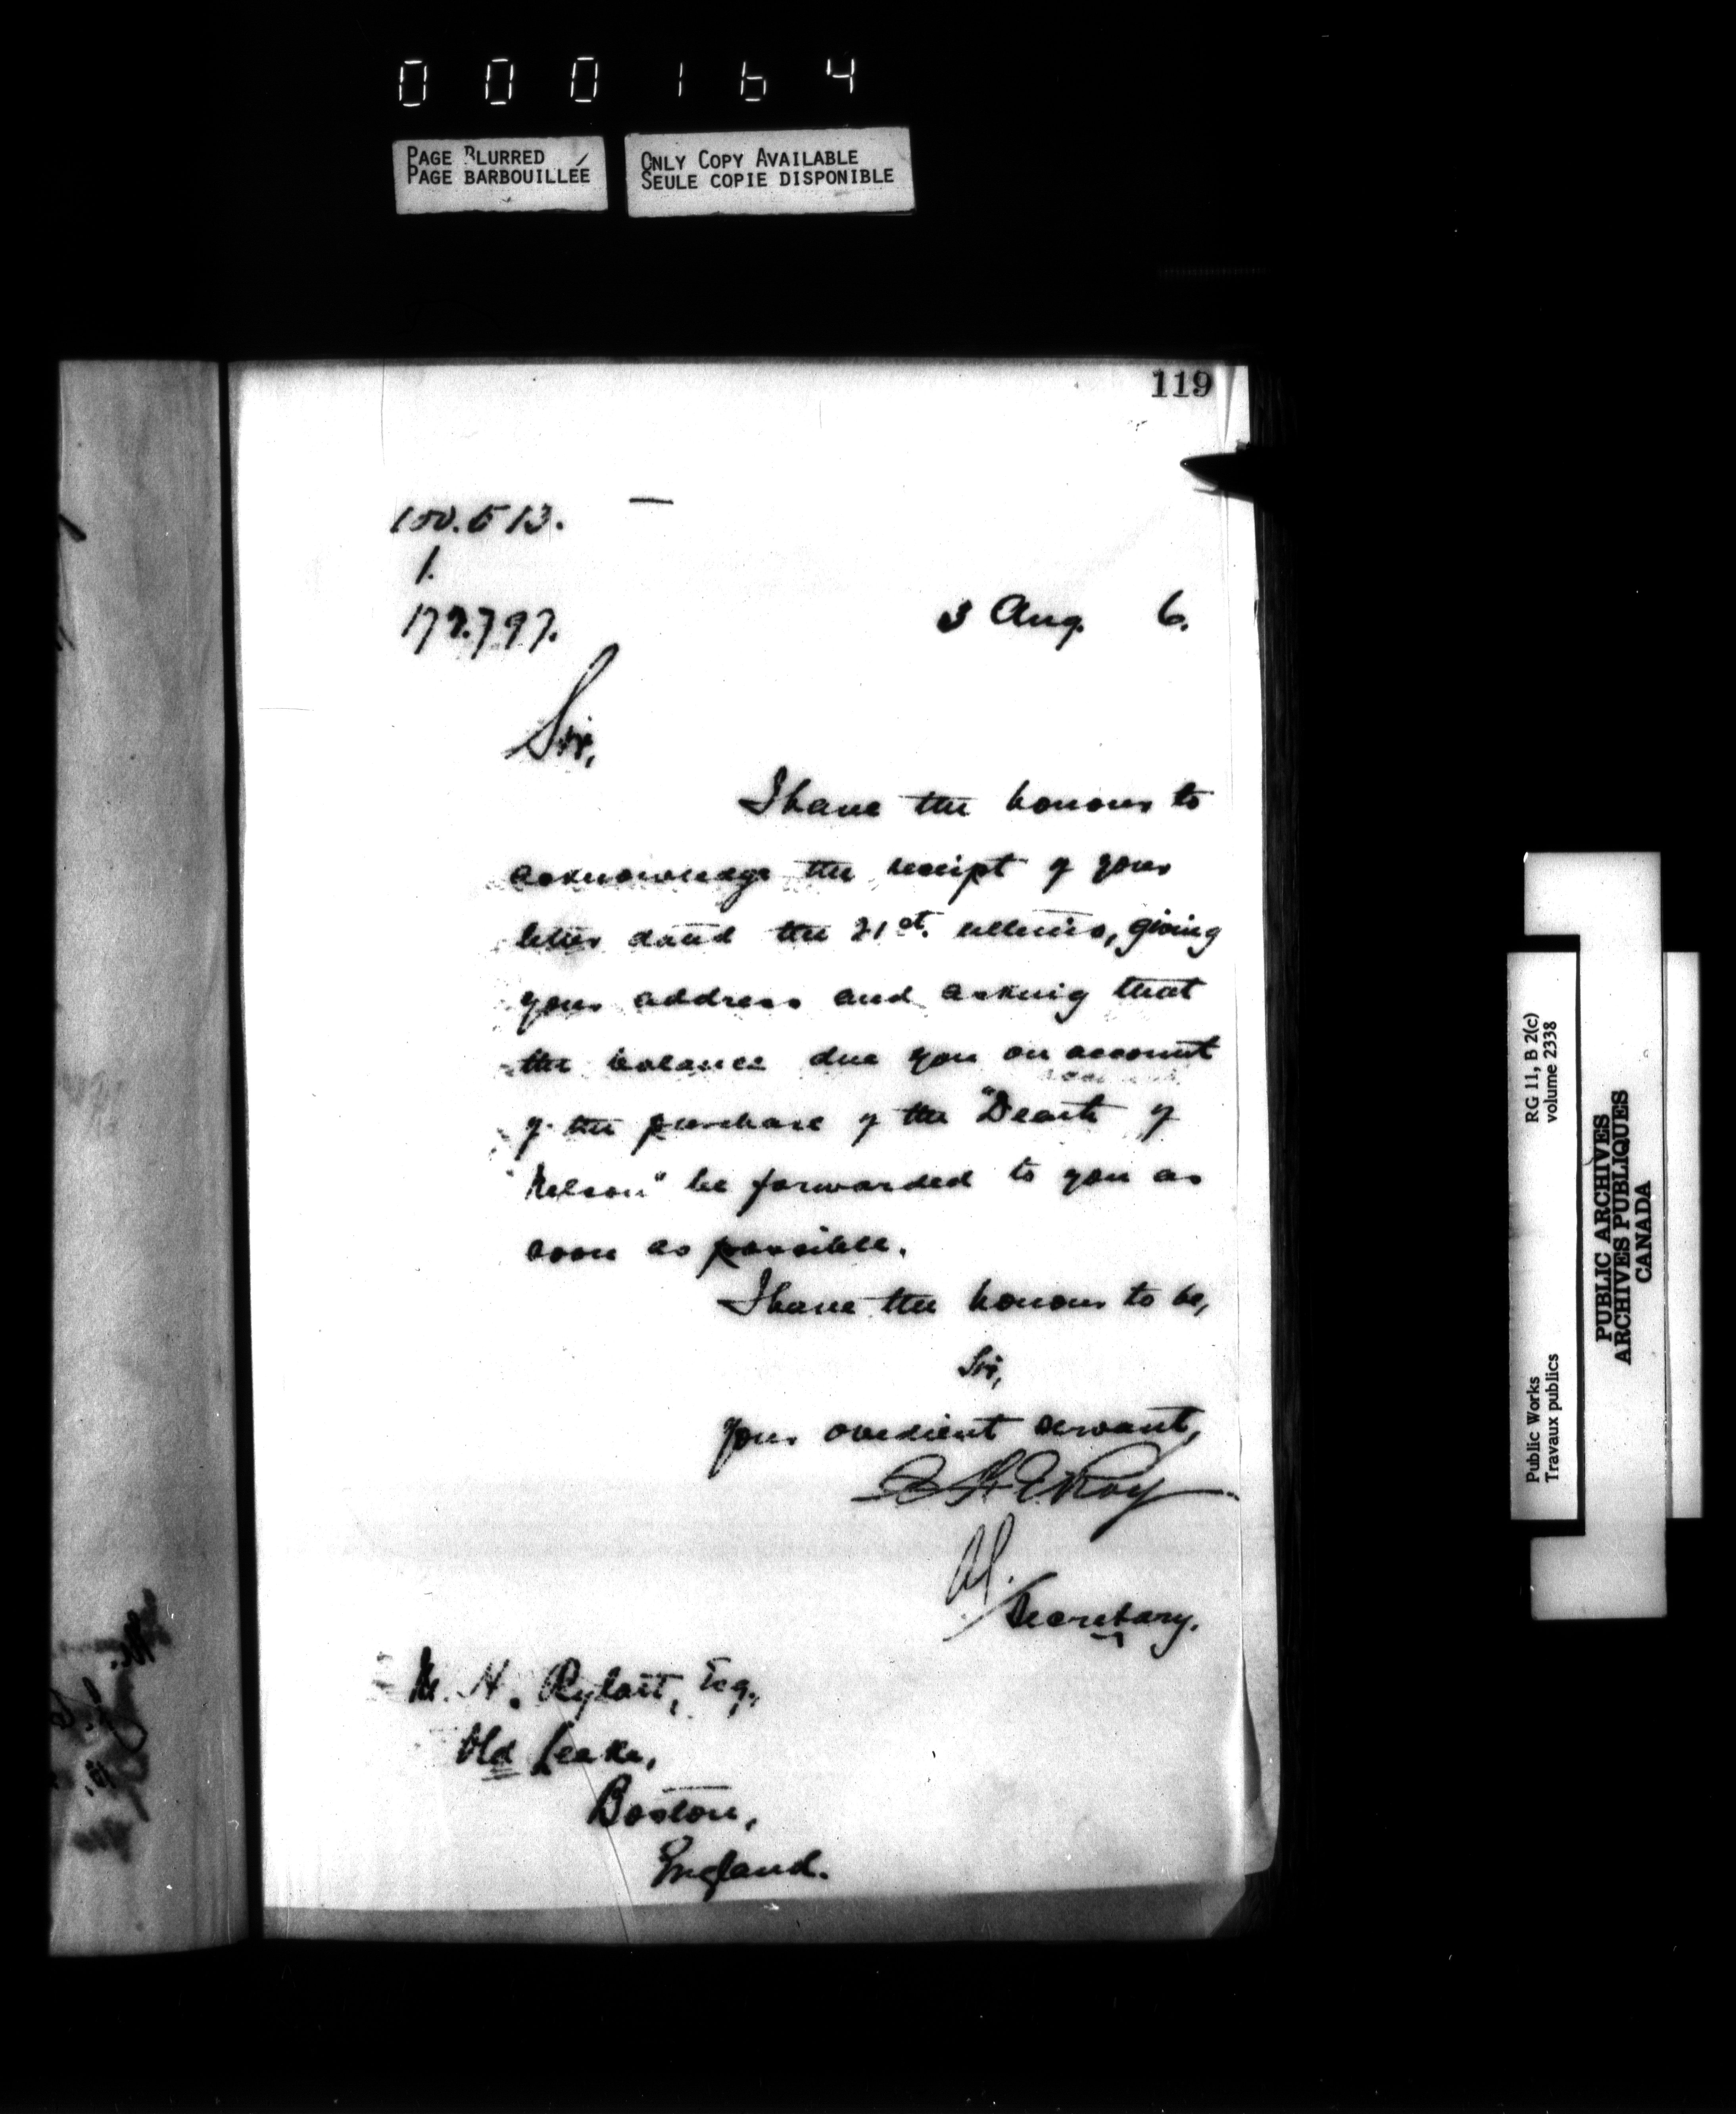 000164
PAGE BLURRED
PAGE BARBOUILLÉE
ONLY COPY AVAILABLE
SEULE COPIE DISPONIBLE
119
1.
3 Aug. 6.
Sir,
I have the honour to
acknowledge the receipt of your
letter dated the 21st. ultimo, giving
your address and asking that
the balance due you on account
of the purchase of the "Death of
"Nelson" be forwarded to you as
soon as possible.
I have the honour to be,
Sir,
Your obedient servant,
Roy
Secretary.
H. Rylatt, Esq.,
Old Leake,
Boston,
England.
Public Works
Travaux publics
RG 11, B 2(c)
volume 2338
PUBLIC ARCHIVES
ARCHIVES PUBLIQUES
CANADA